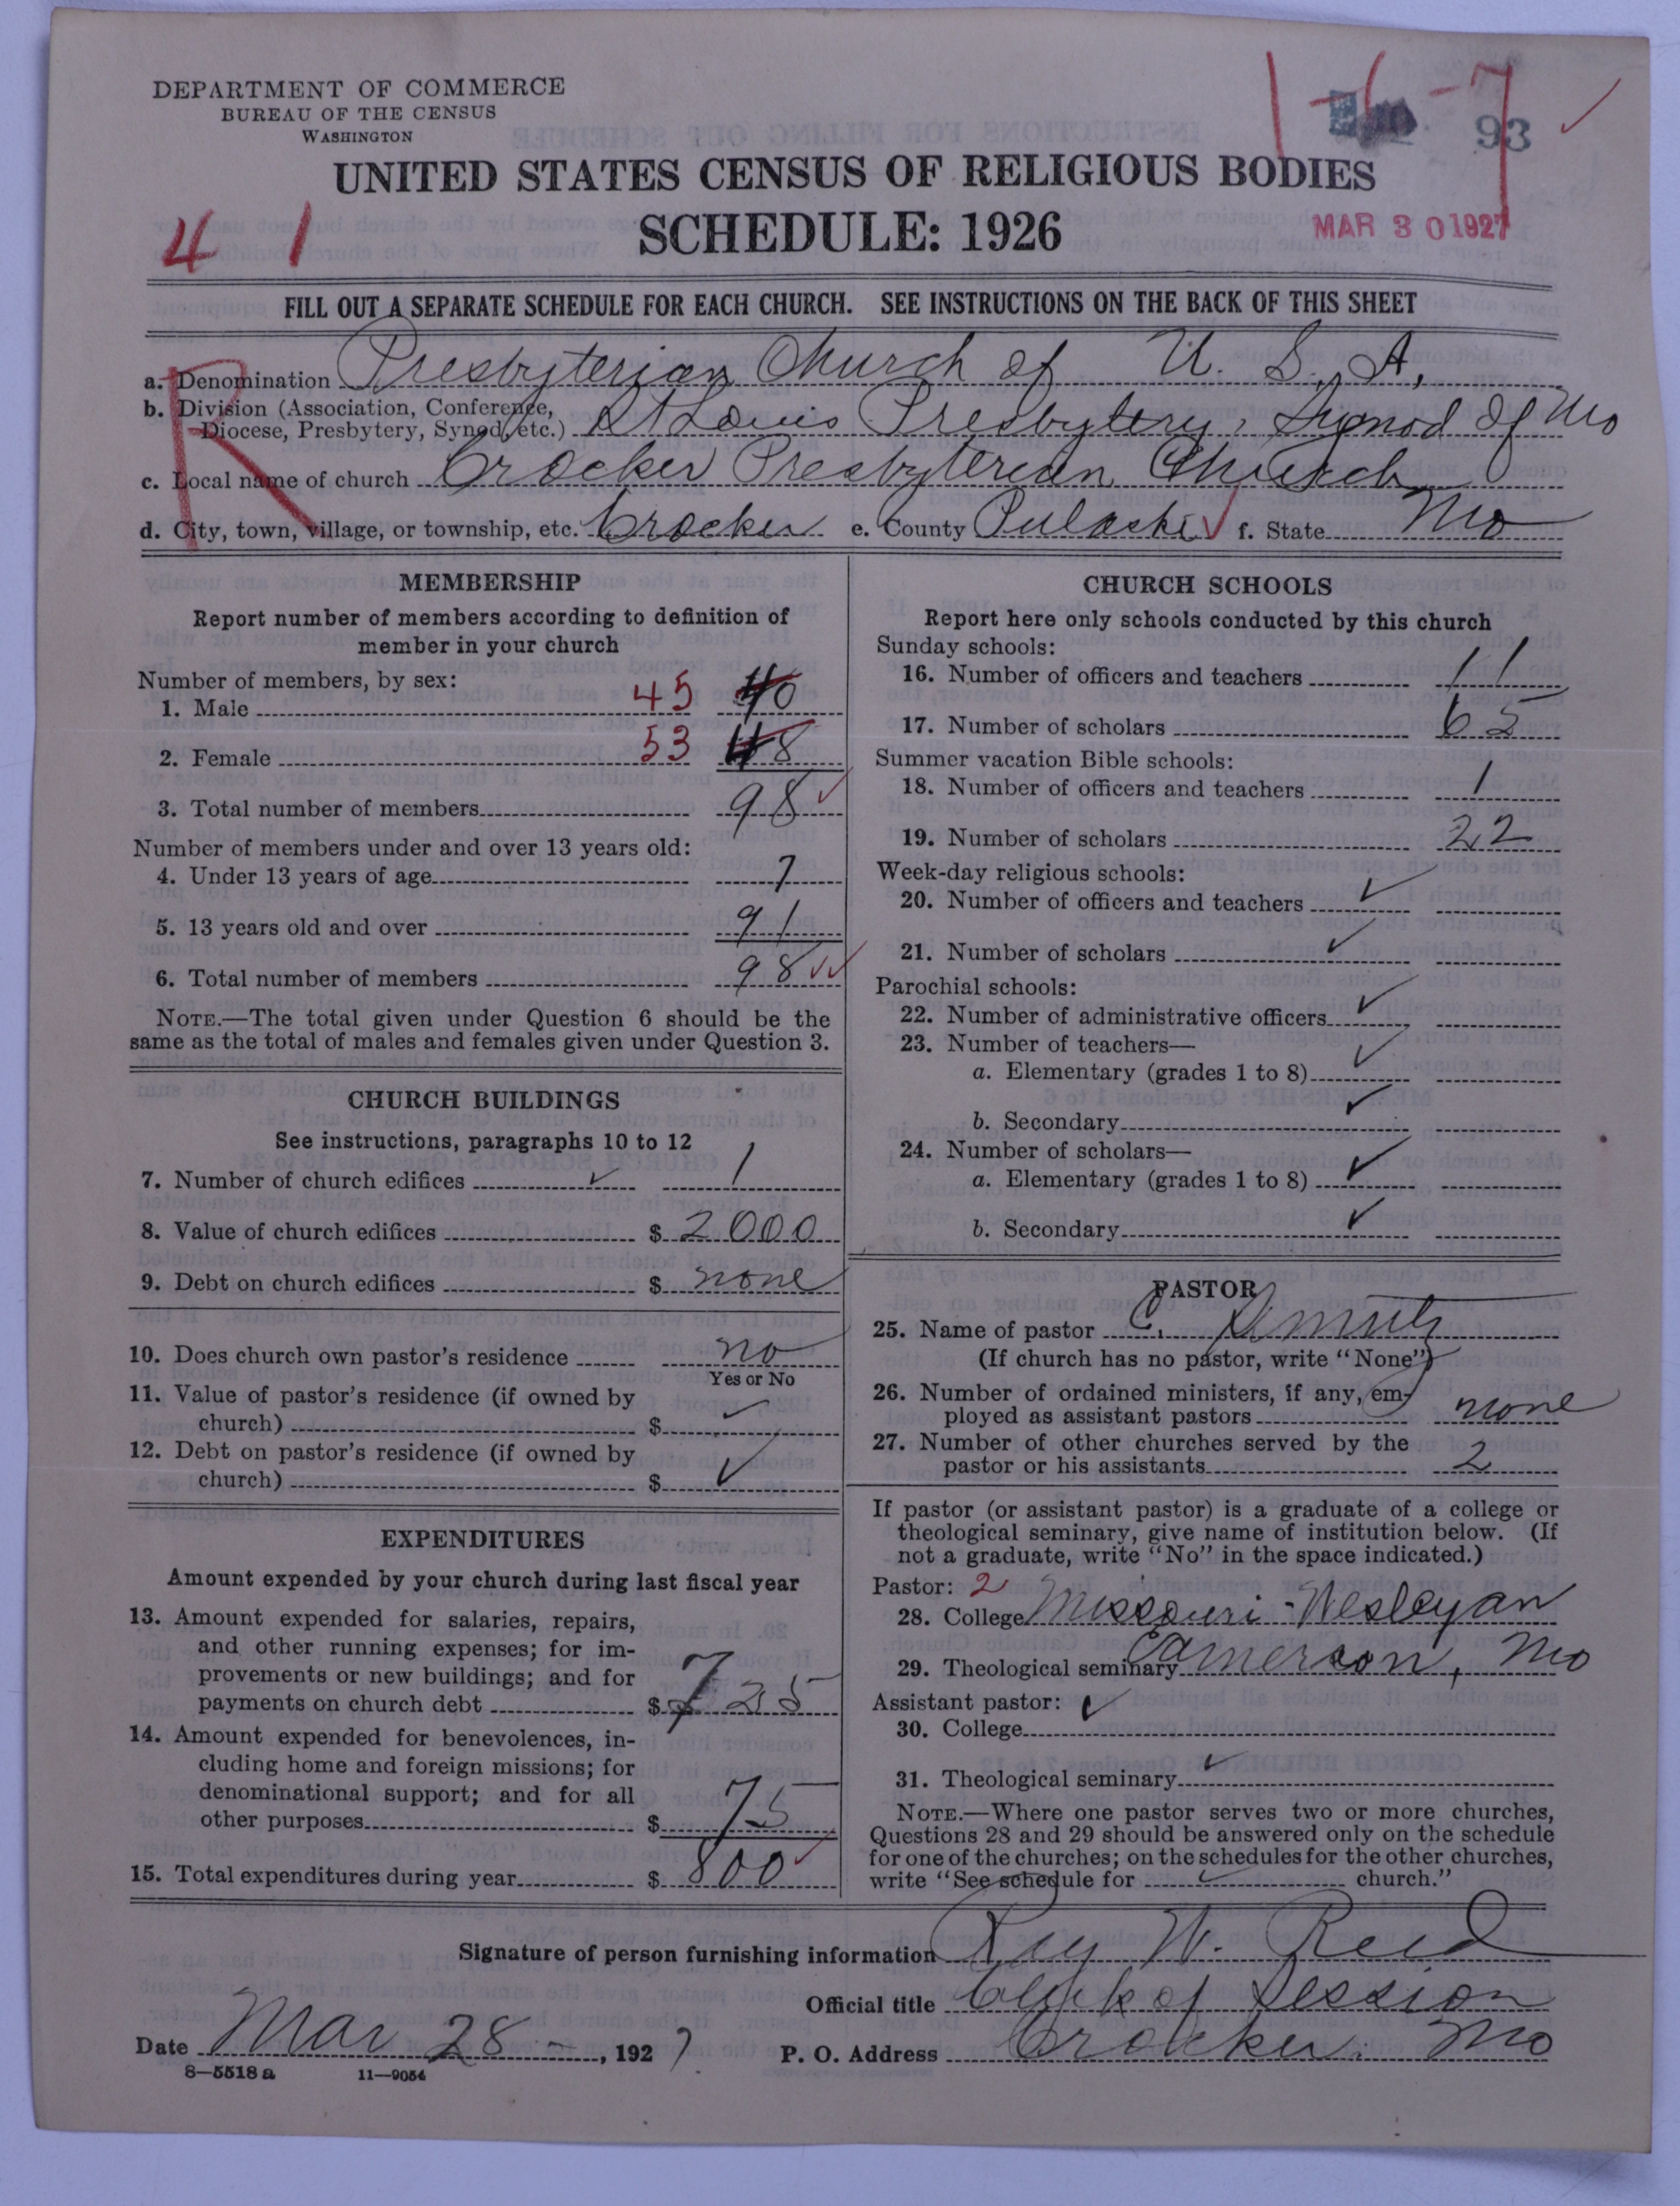 DEPARTMENT OF COMMERCE
BUREAU OF THE CENSUS
WASHINGTON
1-6-7
93
UNITED STATES CENSUS OF RELIGIOUS BODIES
SCHEDULE: 1926
4 1
MAR 30 1927
FILL OUT A SEPARATE SCHEDULE FOR EACH CHURCH. SEE INSTRUCTIONS ON THE BACK OF THIS SHEET
R
a. Denomination Presbyterian Church of U. S. A.
b. Division (Association, Conference, Diocese, Presbytery, Synod, etc.) St Louis Presbytery, Synod of Mo
c. Local name of church Crocker Presbyterian Church
d. City, town, village, or township, etc. Crocker e. County Pulaski ✓ f. State Mo
MEMBERSHIP
Report number of members according to definition of
member in your church
Number of members, by sex:
1. Male 45 40
2. Female 53 48
3. Total number of members 98 ✓
Number of members under and over 13 years old:
4. Under 13 years of age 7
5. 13 years old and over 91
6. Total number of members 98 ✓✓
NOTE.—The total given under Question 6 should be the
same as the total of males and females given under Question 3.
CHURCH BUILDINGS
See instructions, paragraphs 10 to 12
7. Number of church edifices ✓ 1
8. Value of church edifices $ 2000
9. Debt on church edifices $ none
10. Does church own pastor's residence no
Yes or No
11. Value of pastor's residence (if owned by
church) $ ✓
12. Debt on pastor's residence (if owned by
church) $ ✓
EXPENDITURES
Amount expended by your church during last fiscal year
13. Amount expended for salaries, repairs,
and other running expenses; for im-
provements or new buildings; and for
payments on church debt $ 725
14. Amount expended for benevolences, in-
cluding home and foreign missions; for
denominational support; and for all
other purposes $ 75
15. Total expenditures during year $ 800 ✓
CHURCH SCHOOLS
Report here only schools conducted by this church
Sunday schools:
16. Number of officers and teachers 11
17. Number of scholars 65
Summer vacation Bible schools:
18. Number of officers and teachers 1
19. Number of scholars 22
Week-day religious schools:
20. Number of officers and teachers ✓
21. Number of scholars ✓
Parochial schools:
22. Number of administrative officers ✓
23. Number of teachers—
a. Elementary (grades 1 to 8) ✓
b. Secondary ✓
24. Number of scholars—
a. Elementary (grades 1 to 8) ✓
b. Secondary ✓
PASTOR
25. Name of pastor C.
(If church has no pastor, write "None")
26. Number of ordained ministers, if any, em-
ployed as assistant pastors none
27. Number of other churches served by the
pastor or his assistants 2
If pastor (or assistant pastor) is a graduate of a college or
theological seminary, give name of institution below. (If
not a graduate, write "No" in the space indicated.)
Pastor: 2
28. College Missouri-Wesleyan
29. Theological seminary Cameron, Mo
Assistant pastor: ✓
30. College
31. Theological seminary ✓
NOTE.—Where one pastor serves two or more churches,
Questions 28 and 29 should be answered only on the schedule
for one of the churches; on the schedules for the other churches,
write "See schedule for ✓ church."
Signature of person furnishing information Ray W. Reed
Official title Clerk of Session
Date Mar 28 -, 1927 P. O. Address Crocker. Mo
8—5518 a 11—9054